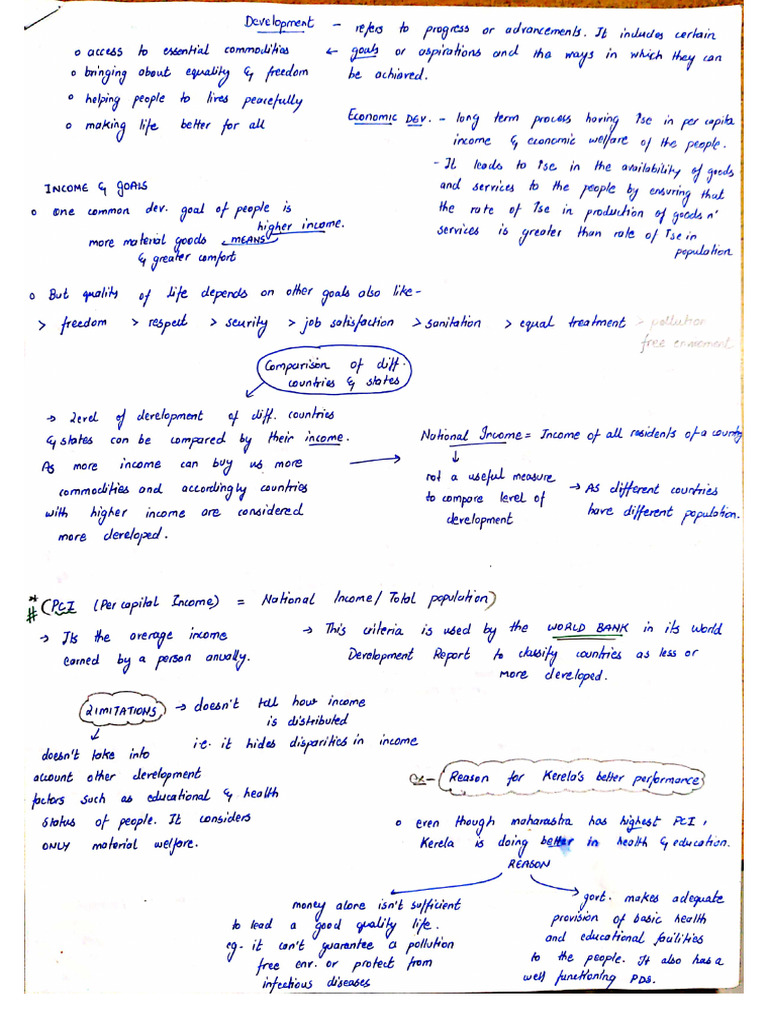 Development - refers to progress or advancements. It includes certain
goals or aspirations and the ways in which they can
be achieved.
o access to essential commodities ←
o bringing about equality & freedom
o helping people to lives peacefully
o making life better for all
Economic Dev. - long term process having ↑se in per capita
income & economic welfare of the people.
- It leads to ↑se in the availability of goods
and services to the people by ensuring that
the rate of ↑se in production of goods n'
services is greater than rate of ↑se in
population
INCOME & GOALS
o one common dev. goal of people is
higher income.
more material goods ← MEANS
& greater comfort
o But quality of life depends on other goals also like -
> freedom > respect > seurity > job satisfaction > sanitation > equal treatment > pollution
free enviroment
Comparison of diff.
countries & states
→ Level of development of diff. countries
& states can be compared by their income.
As more income can buy us more
commodities and accordingly countries
with higher income are considered
more developed.
National Income = Income of all residents of a country
↓
not a useful measure
to compare level of
development
→ As different countries
have different population.
*
# (PCI (Per capital Income) = National Income / Total population)
→ Its the average income
earned by a person anually.
→ This criteria is used by the WORLD BANK in its World
Development Report to classify countries as less or
more developed.
LIMITATIONS → doesn't tell how income
is distributed
i.e. it hides disparities in income
↓
doesn't take into
account other development
factors such as educational & health
status of people. It considers
ONLY material welfare.
Ex- Reason for Kerela's better performance
o even though maharastra has highest PCI,
Kerela is doing better in health & education.
REASON
money alone isn't sufficient
to lead a good quality life.
eg- it can't guarantee a pollution
free env. or protect from
infectious diseases
govt. makes adequate
provision of basic health
and educational facilities
to the people. It also has a
well functioning PDS.